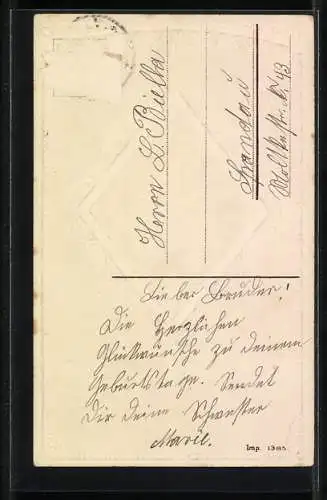 Herrn L. Bulla
Spandau
Moltkestr. N. 43
Lieber Bruder!
Die Herzlichen
Glückwunsche zu deinem
Geburtstage. Sendet
Dir deine Schwester
Marie.
Imp.